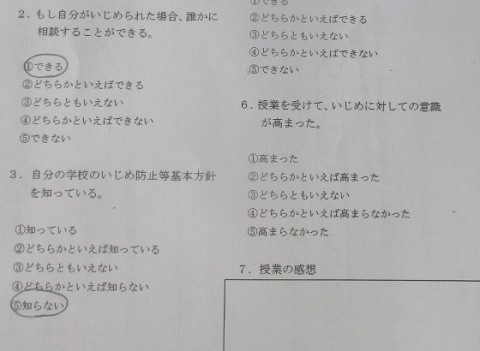 2．もし自分がいじめられた場合、誰かに
相談することができる。
①できる
②どちらかといえばできる
③どちらともいえない
④どちらかといえばできない
⑤できない
3．自分の学校のいじめ防止等基本方針
を知っている。
①知っている
②どちらかといえば知っている
③どちらともいえない
④どちらかといえば知らない
⑤知らない
①できる
②どちらかといえばできる
③どちらともいえない
④どちらかといえばできない
⑤できない
6．授業を受けて、いじめに対しての意識
が高まった。
①高まった
②どちらかといえば高まった
③どちらともいえない
④どちらかといえば高まらなかった
⑤高まらなかった
7．授業の感想